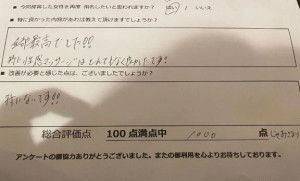 今回接客した女性を再度指名したいと思われますか? はい / いいえ
特に良かった内容があれば教えて頂けますでしょうか?
全部最高でした!!
特に性感マッサージはとんでもなく良かったです!
改善が必要と感じた点は、ございましたでしょうか?
特にないです!!
総合評価点 100点満点中 1000 点
アンケートの御協力ありがとうございました。またの御利用を心よりお待ちしております。